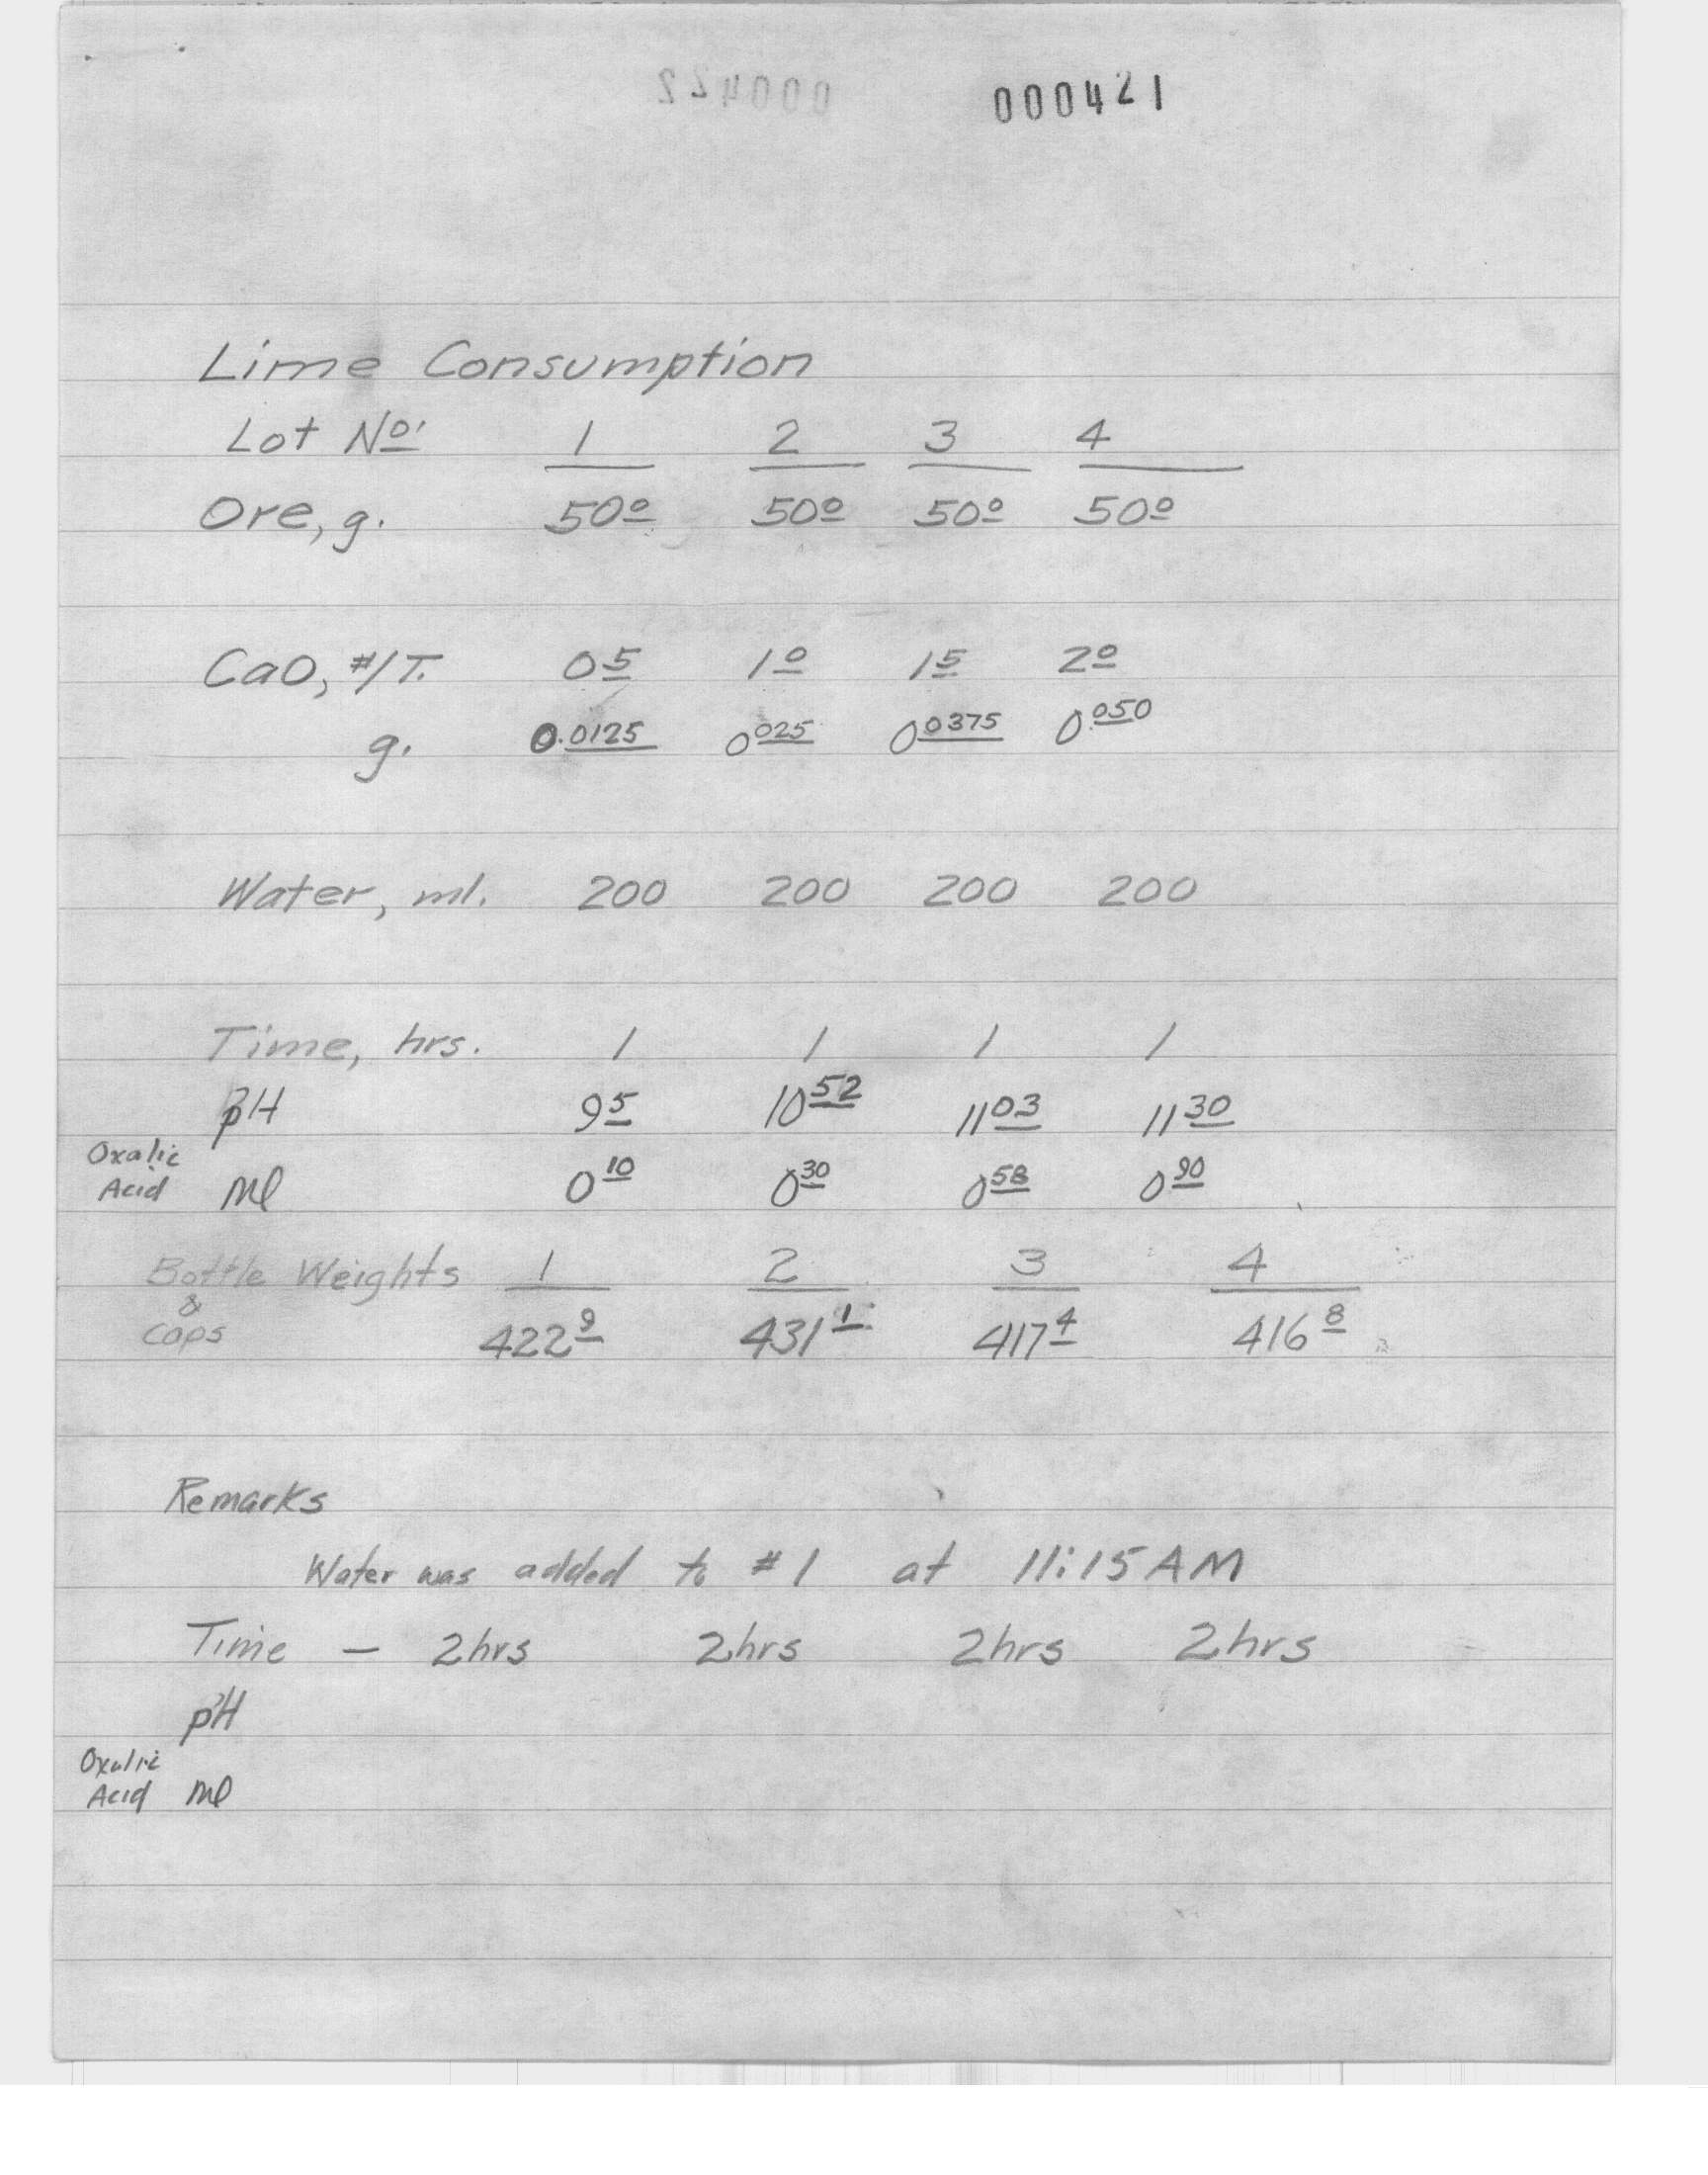 000422 000421
Lime Consumption
Lot No. 1 2 3 4
Ore, g. 50º 50º 50º 50º
CaO, #/T. 0⁵ 1⁰ 1⁵ 2⁰
g. 0.0125 0⁰²⁵ 0⁰³⁷⁵ 0.⁰⁵⁰
Water, ml. 200 200 200 200
Time, hrs. 1 1 1 1
pH 9⁵ 10⁵² 11⁰³ 11³⁰
Oxalic
Acid ml 0¹⁰ 0³⁰ 0⁵⁸ 0⁹⁰
Bottle Weights 1 2 3 4
&
Caps 422⁹ 431¹ 417⁴ 416⁸
Remarks
Water was added to #1 at 11:15 AM
Time — 2hrs 2hrs 2hrs 2hrs
pH
Oxalic
Acid ml